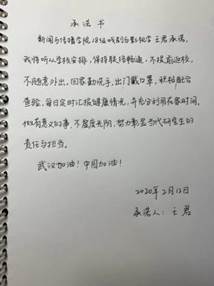 承诺书
新闻与传播学院19级戏剧与影视学王君承诺，
我将听从学校安排，保持联络畅通，不提前返校，
不随意外出，回家勤洗手，出门戴口罩，积极配合
查验，每日定时汇报健康情况，并充分利用居家时间，
做有意义的事，不虚度光阴，努力彰显当代研究生的
责任与担当。
武汉加油！中国加油！
2020年2月12日
承诺人：王君